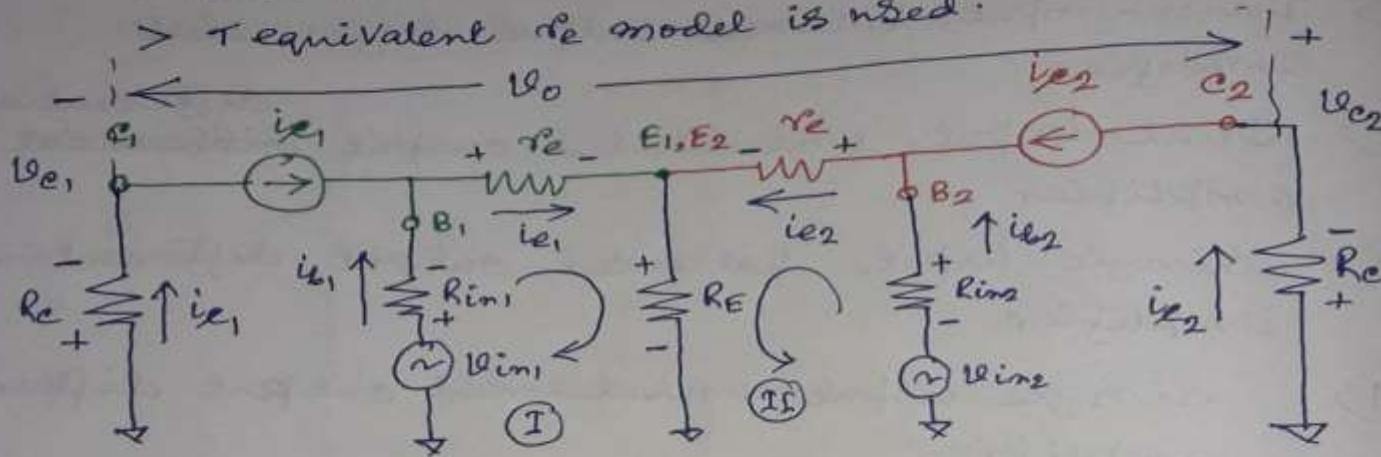 > T equivalent re model is used.
- vo +
C1 ic1 + re - E1, E2 - re + ic2 C2 vc2
vc1
B1 ie1 ie2 B2
- Rc + ic1 ib1 - Rin1 + + RE - + Rin2 - ib2 ic2 - Rc +
vin1 vin2
I II